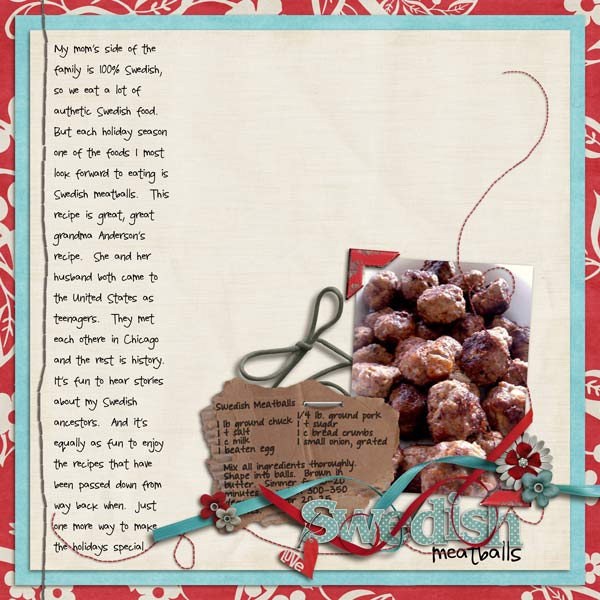 My mom's side of the
family is 100% Swedish,
so we eat a lot of
authetic Swedish food.
But each holiday season
one of the foods I most
look forward to eating is
Swedish meatballs. This
recipe is great, great
grandma Anderson's
recipe. She and her
husband both came to
the United States as
teenagers. They met
each othere in Chicago
and the rest is history.
It's fun to hear stories
about my Swedish
ancestors. And it's
equally as fun to enjoy
the recipes that have
been passed down from
way back when. Just
one more way to make
the holidays special.
Swedish Meatballs
1 lb ground chuck 1/4 lb. ground pork
1 t salt 1 t sugar
1 c milk 1 c bread crumbs
1 beaten egg 1 small onion, grated
Mix all ingredients thoroughly.
Shape into balls. Brown in
butter. Simmer 20
minutes 300-350
20-25
Swedish
meatballs
love